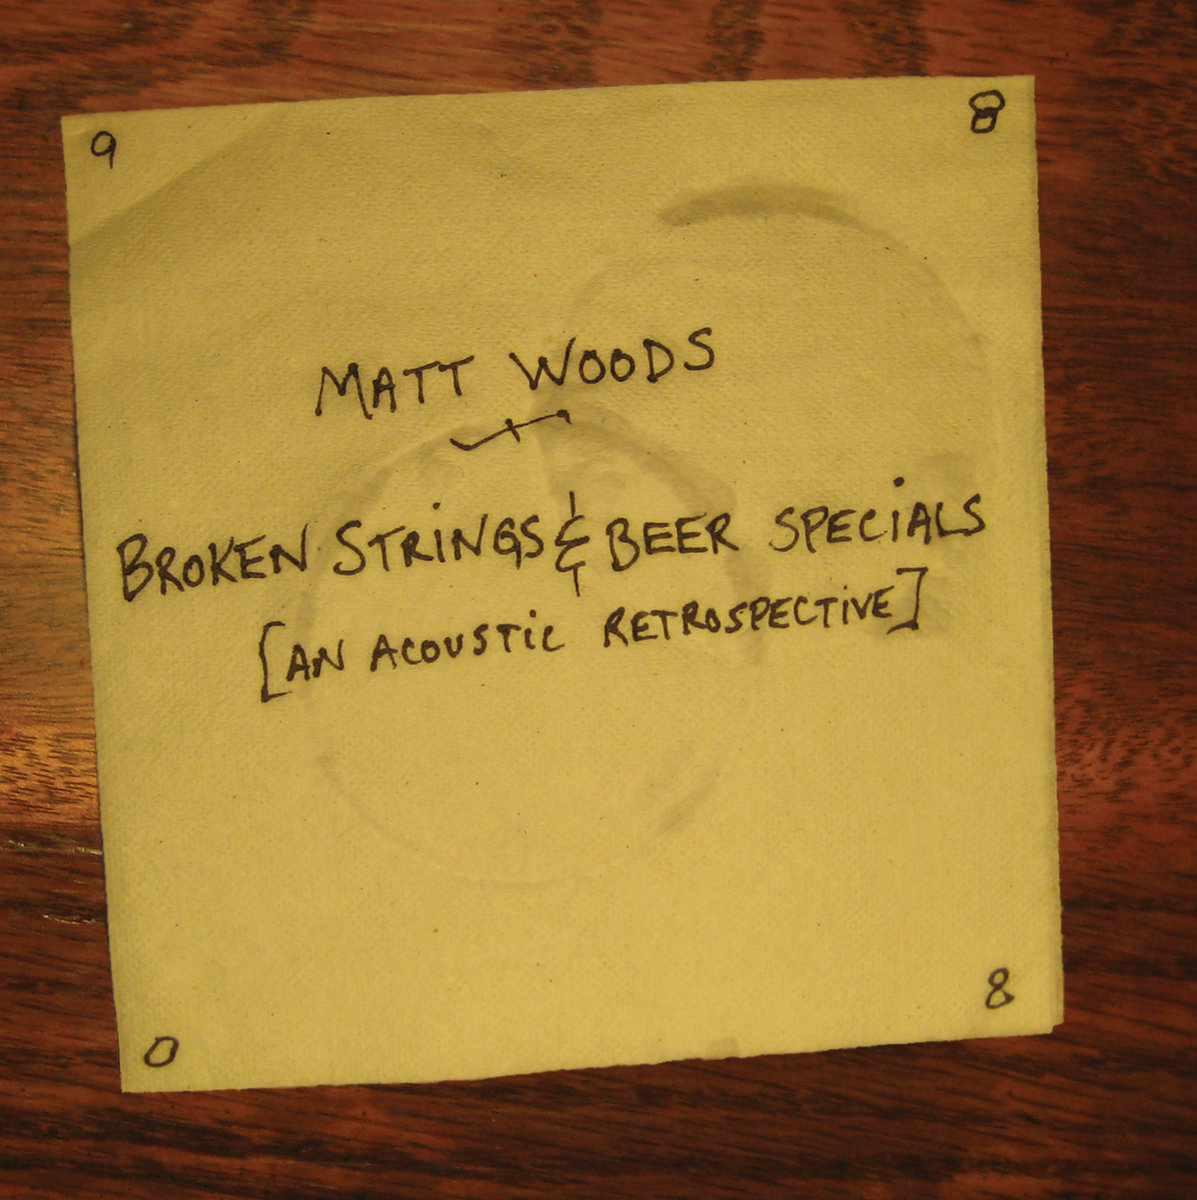 9 8
MATT WOODS
BROKEN STRINGS & BEER SPECIALS
[AN ACOUSTIC RETROSPECTIVE]
0 8